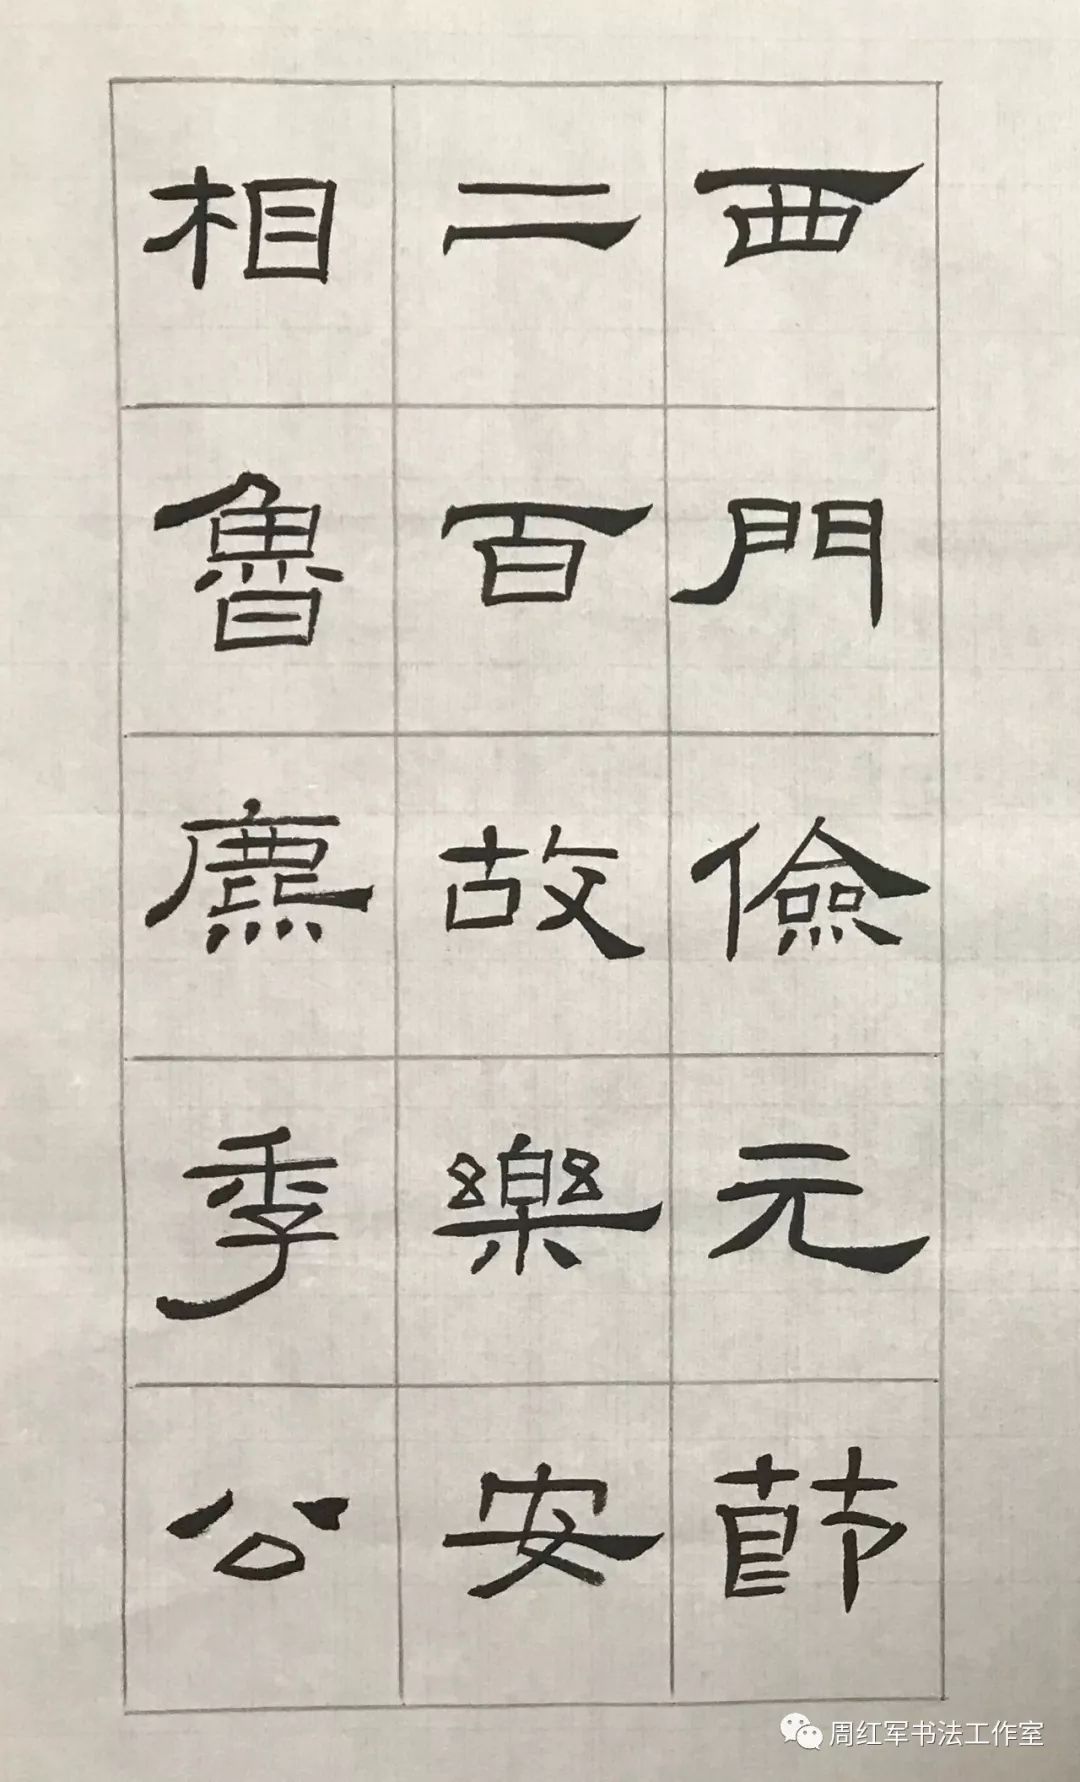 西門儉元節
二百故樂安
相魯麃季公
周红军书法工作室